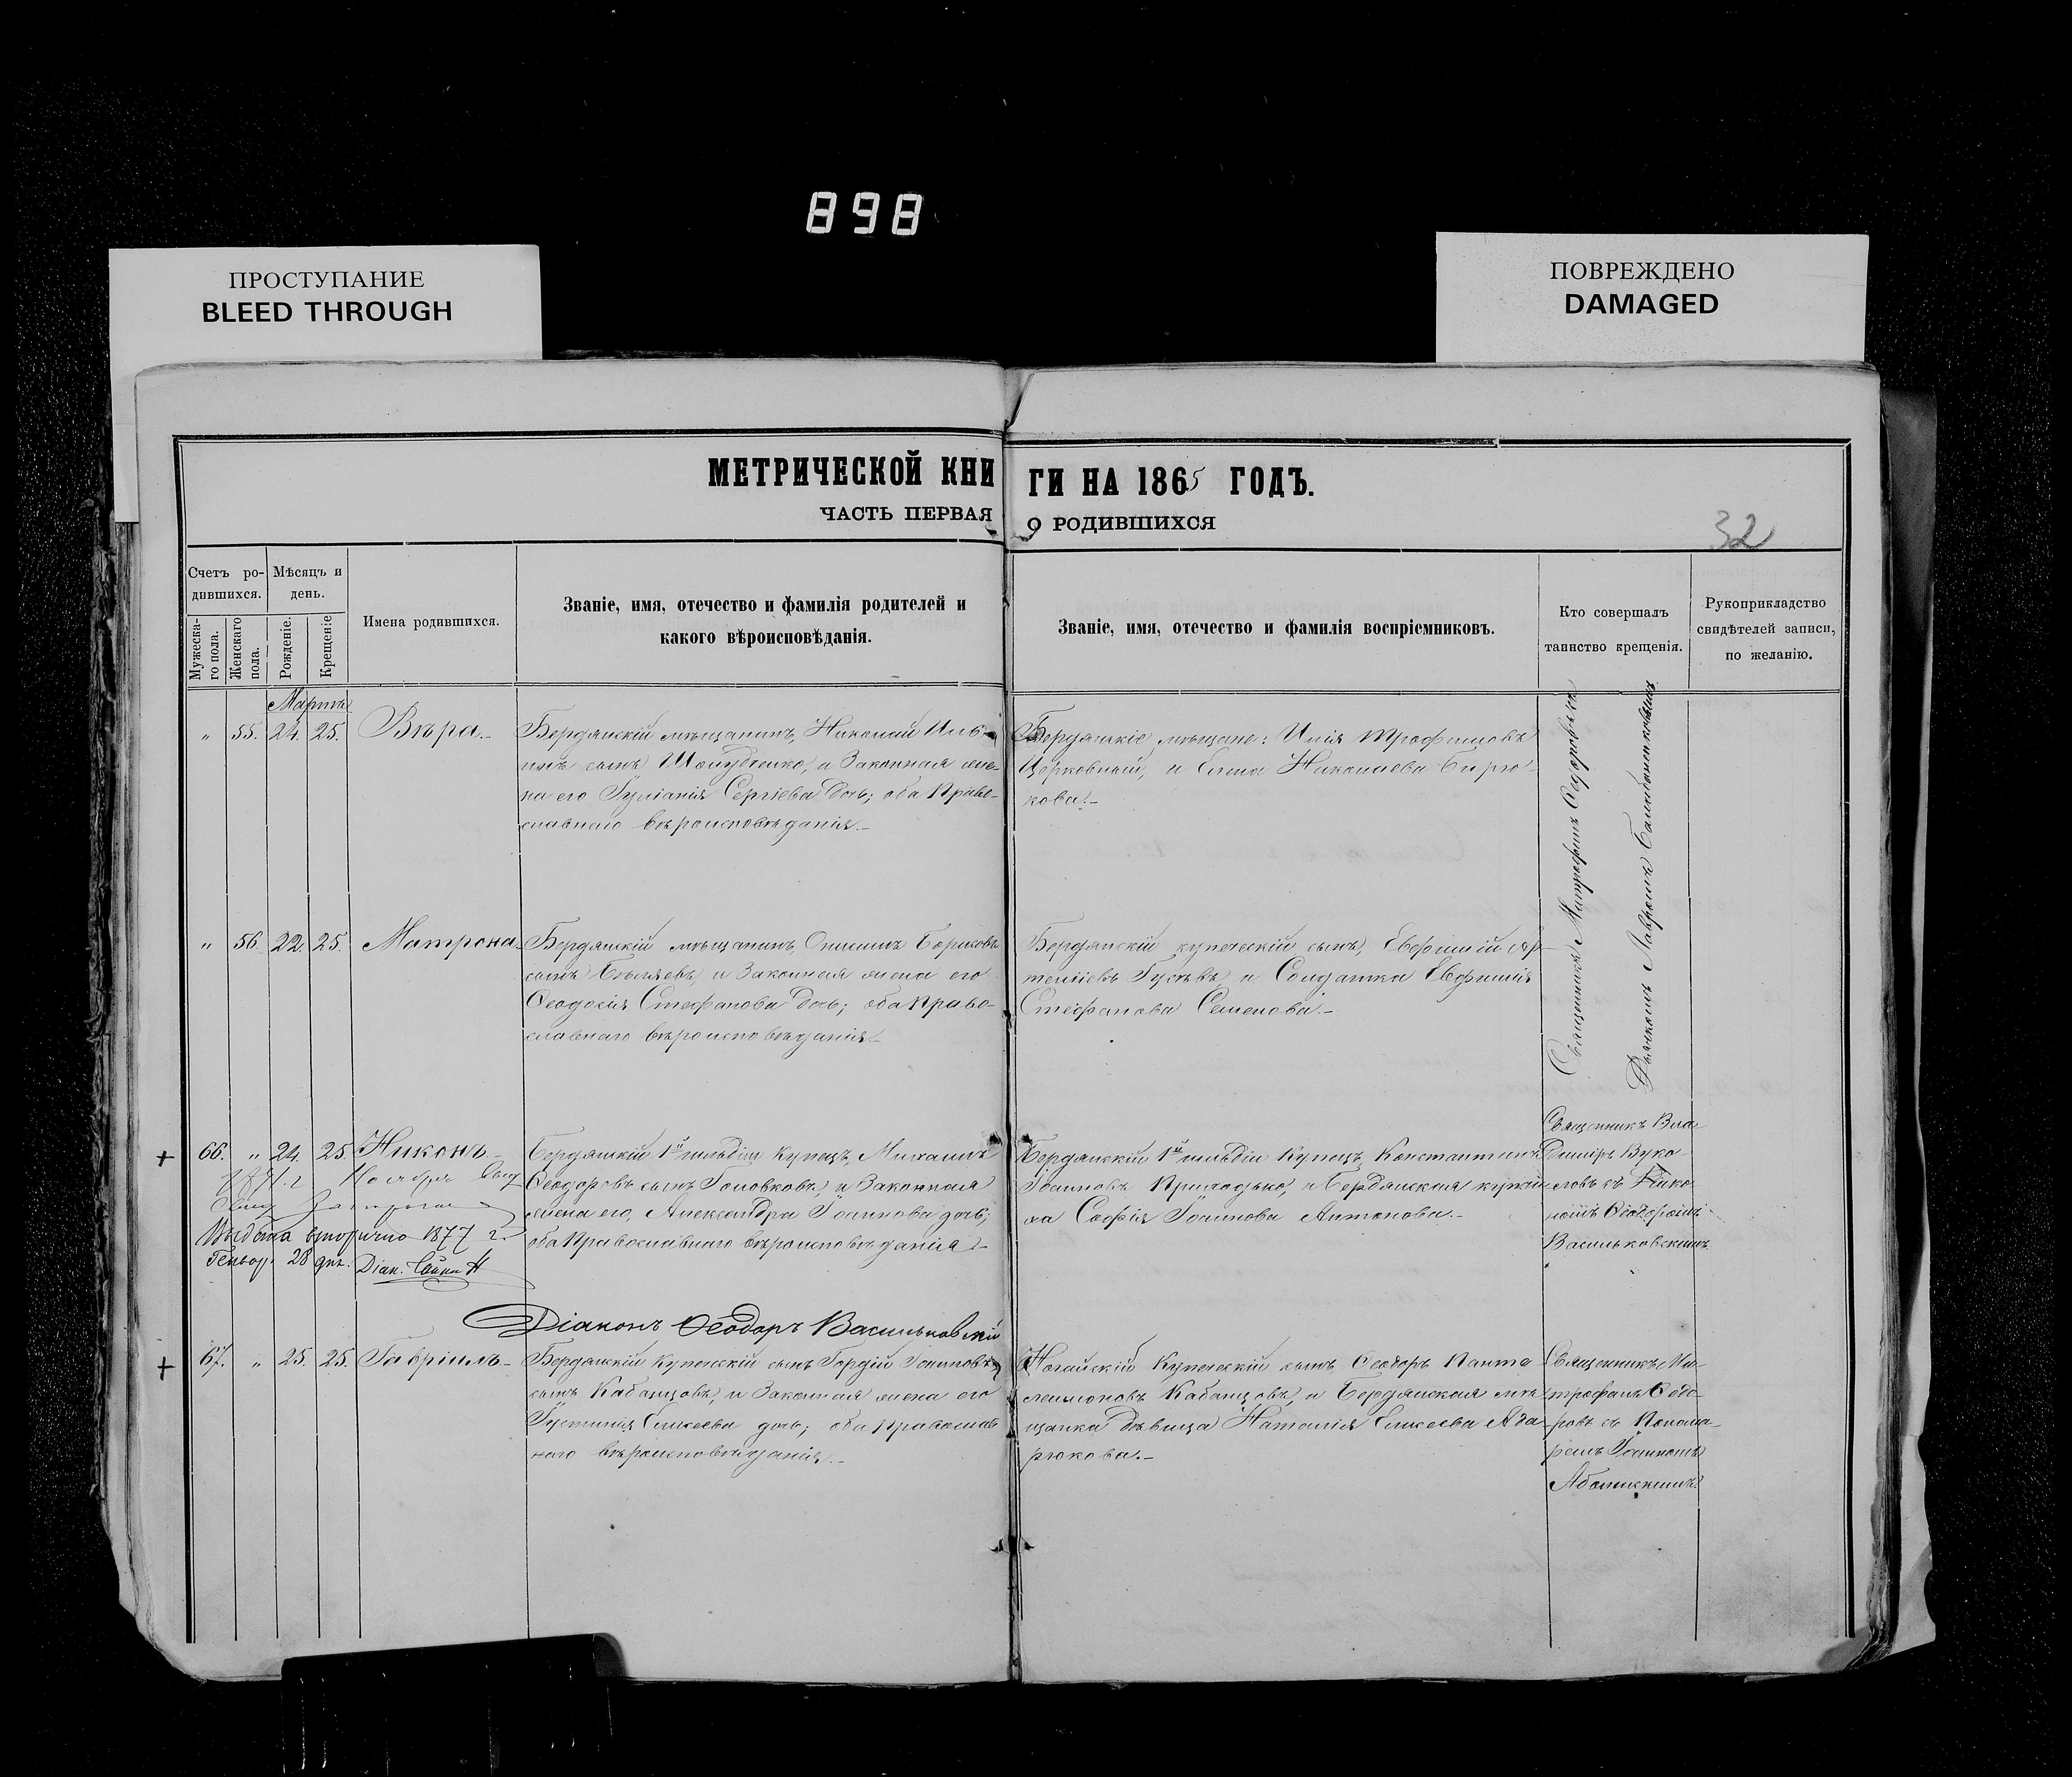 898
ПРОСТУПАНИЕ
BLEED THROUGH
ПОВРЕЖДЕНО
DAMAGED
МЕТРИЧЕСКОЙ КНИ
ГИ НА 1865 ГОДЪ.
ЧАСТЬ ПЕРВАЯ
О РОДИВШИХСЯ
32
Счетъ ро-
дившихся.
Мужеска-
го пола.
Женскаго
пола.
Мѣсяцъ и
день.
Рожденіе.
Крещеніе
Имена родившихся.
Званіе, имя, отечество и фамилія родителей и
какого вѣроисповѣданія.
Званіе, имя, отечество и фамилія воспріемниковъ.
Кто совершалъ
таинство крещенія.
Рукоприкладство
свидѣтелей записи,
по желанію.
Марта
" 55. 24. 25. Вѣра.-
Бердянскій мѣщанинъ, Николай Иль-
инъ сынъ и Законная же-
на его Іуліанія Сергіева дочь; оба Право-
славнаго вѣроисповѣданія.-
Бердянскіе мѣщане: Илія Трофимовъ
Церковный, и Елена Николаева Бирю-
кова.-
Священникъ Митрофанъ Ѳедоровъ съ
Дьячкомъ Лавромъ
" 56. 22. 25. Матрона.
Бердянскій мѣщанинъ, Онисимъ Борисовъ
сынъ Бѣляевъ, и Законная жена его
Ѳеодосія Стефанова дочь; оба Право-
славнаго вѣроисповѣданія.-
Бердянскій купеческій сынъ, Евфимій Ар-
теміевъ Гусевъ, и Солдатка Евфимія
Стефанова Семенова.-
+ 66. " 24. 25. Никонъ.-
Бердянскій 1й гильдіи Купецъ, Михаилъ
Ѳеодоровъ сынъ Головковъ, и Законная
жена его, Александра Іоаннова дочь;
оба Православнаго вѣроисповѣданія.-
1871. г. Ноября
Выдана вторично 1877 г.
Генвар. 28 дня. Діак.
Бердянскій 1й гильдіи Купецъ, Константинъ
Іоанновъ Приходько, и Бердянская купчи-
ха Софія Іоаннова Антонова.-
Священникъ Вла-
диміръ Вуко-
ловъ съ Діако-
номъ Ѳеодоромъ
Васильковскимъ
Діаконъ Ѳеодоръ Васильковскій
+ 67. " 25. 25. Гавріилъ.-
Бердянскій купеческій сынъ Гордій Іоанновъ
сынъ Кабанцовъ, и Законная жена его
Іустинія Елисеева дочь; оба Православ
наго вѣроисповѣданія.-
Ногайскій Купеческій сынъ, Ѳеодоръ Панте-
леимоновъ Кабанцовъ, и Бердянская мѣ-
щанка дѣвица Наталія Елисеева
рюкова.-
Священникъ Ми-
трофанъ Ѳедо-
ровъ съ Понома-
ремъ Іоанномъ